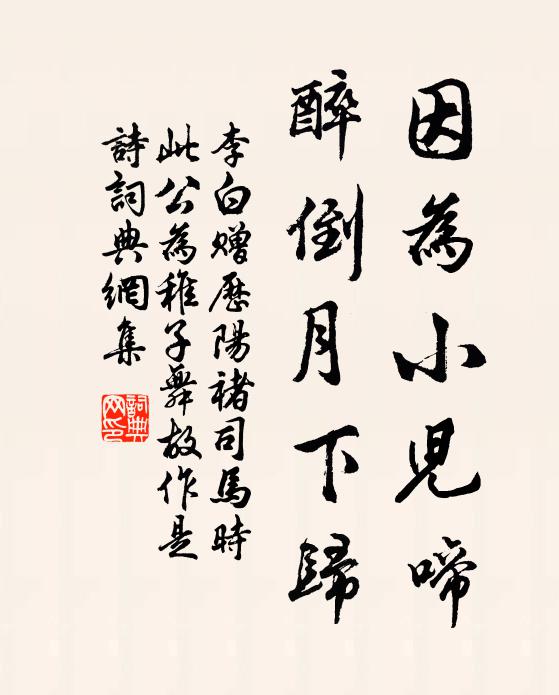 因為小児啼
醉倒月下歸
李白贈歷陽褚司馬時
此公為稚子舞故作是
詩詞典網集
詞典網印